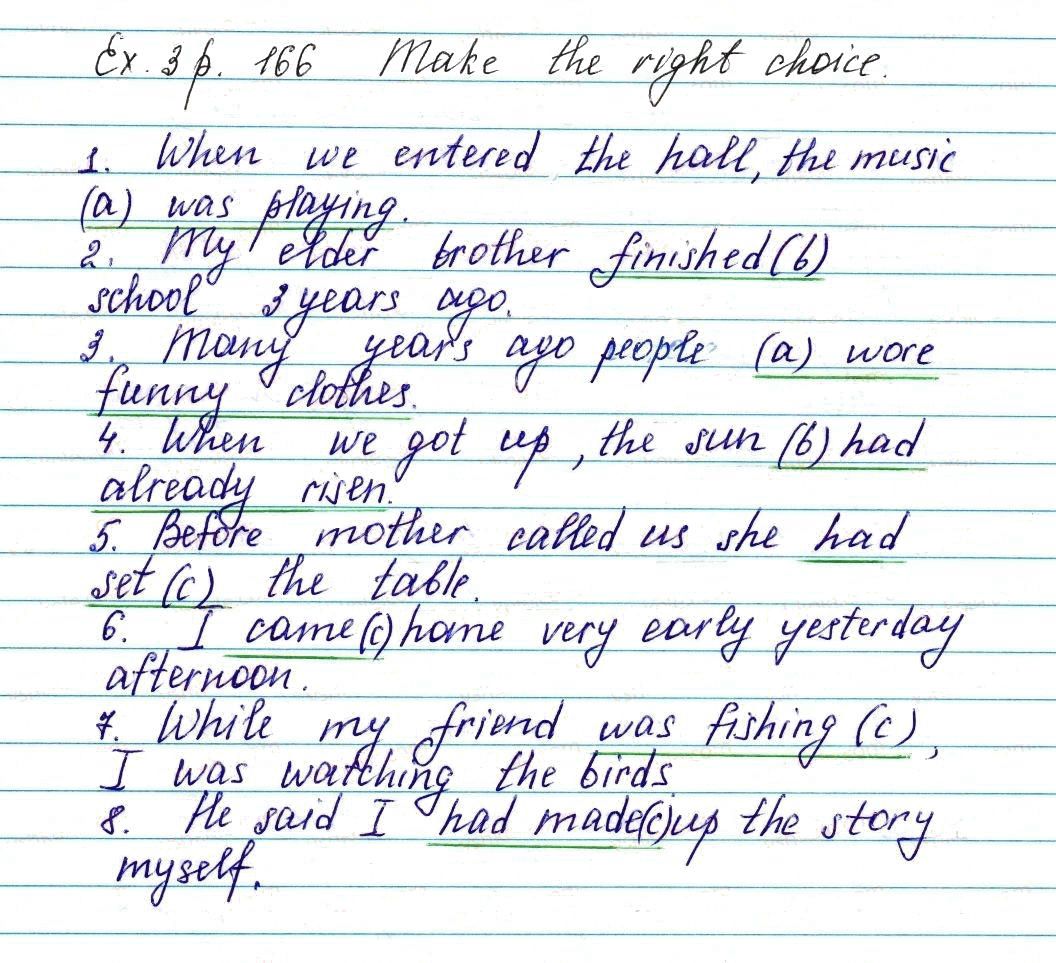 Ex. 3 p. 166 Make the right choice.
1. When we entered the hall, the music
(a) was playing.
2. My elder brother finished (b)
school 3 years ago.
3. Many years ago people (a) wore
funny clothes.
4. When we got up, the sun (b) had
already risen.
5. Before mother called us she had
set (c) the table.
6. I came (c) home very early yesterday
afternoon.
7. While my friend was fishing (c),
I was watching the birds.
8. He said I had made (c) up the story
myself.